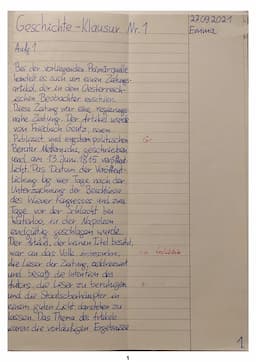 Geschichte-Klausur Nr. 1
27.09.2021
Emma
Aufg. 1
Bei der vorliegenden Primärquelle
handelt es sich um einen Zeitungs-
artikel, der in dem Oesterreich-
ischen Beobachter erschien.
Diese Zeitung war eine regierungs-
nahe Zeitung. Der Artikel wurde
von Friedrich Gentz, einem
Publizist und engstem politischen
Berater Metternichs, geschrieben
und am 13. Juni 1815 veröffent-
licht. Das Datum der Veröffent-
lichung lag vier Tage nach der
Unterzeichnung der Beschlüsse
des Wiener Kongresses und zwei
Tage vor der Schlacht bei
Waterloo, in der Napoleon
endgültig geschlagen wurde.
Der Artikel, der keinen Titel besitzt,
war an das Volk
die Leser der Zeitung, addressiert
und besaß die Intention des
Autors, die Leser zu beruhigen
und die Staatsoberhäupter in
einem guten Licht darstehen zu
lassen. Das Thema des Artikels
waren die vorläufigen Ergebnisse
1
1